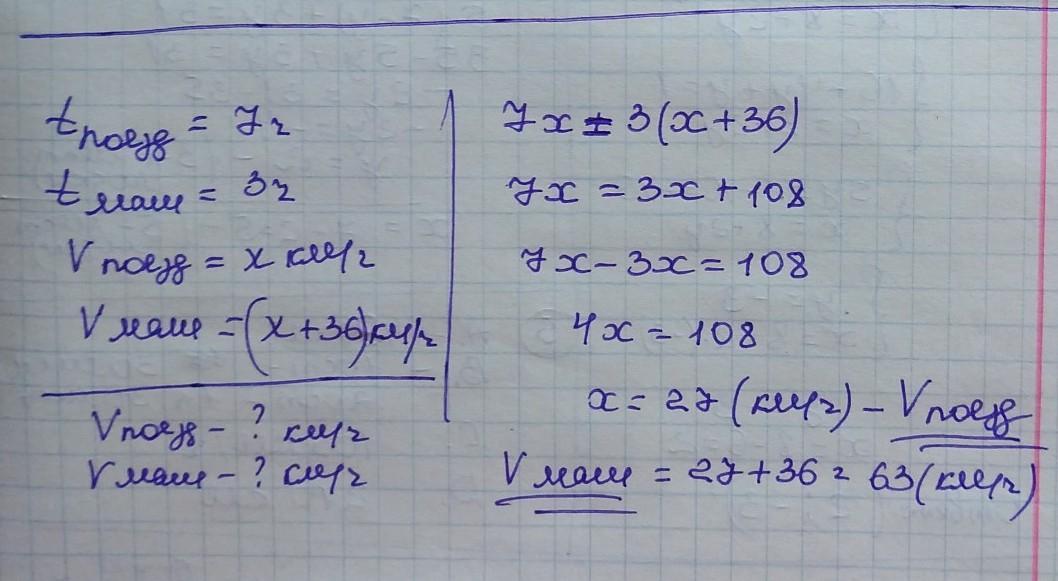 t поезд = 7ч
t маш = 3ч
V поезд = x км/ч
V маш = (x+36) км/ч
V поезд - ? км/ч
V маш - ? км/ч
7x = 3(x+36)
7x = 3x + 108
7x - 3x = 108
4x = 108
x = 27 (км/ч) - V поезд
V маш = 27 + 36 = 63 (км/ч)